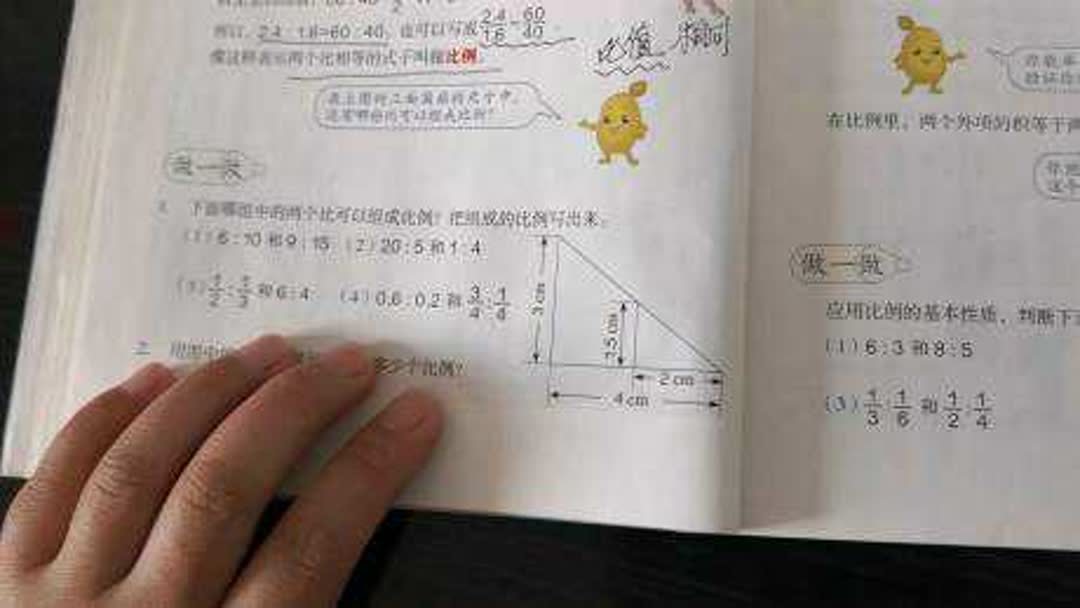 所以，2.4:1.6=60:40。也可以写成 2.4/1.6=60/40。
像这样表示两个比相等的式子叫做比例。
比值 相同
在上图的三面国旗的尺寸中，
还有哪些比可以组成比例？
做一做
1. 下面哪组中的两个比可以组成比例？把组成的比例写出来。
(1) 6:10 和 9:15 (2) 20:5 和 1:4
(3) 1/2:1/3 和 6:4 (4) 0.6:0.2 和 3/4:1/4
2. 用图中的
多少个比例？
3 cm
1.5 cm
2 cm
4 cm
在比例里，两个外项的积等于两
做一做
应用比例的基本性质，判断下
(1) 6:3 和 8:5
(3) 1/3:1/6 和 1/2:1/4